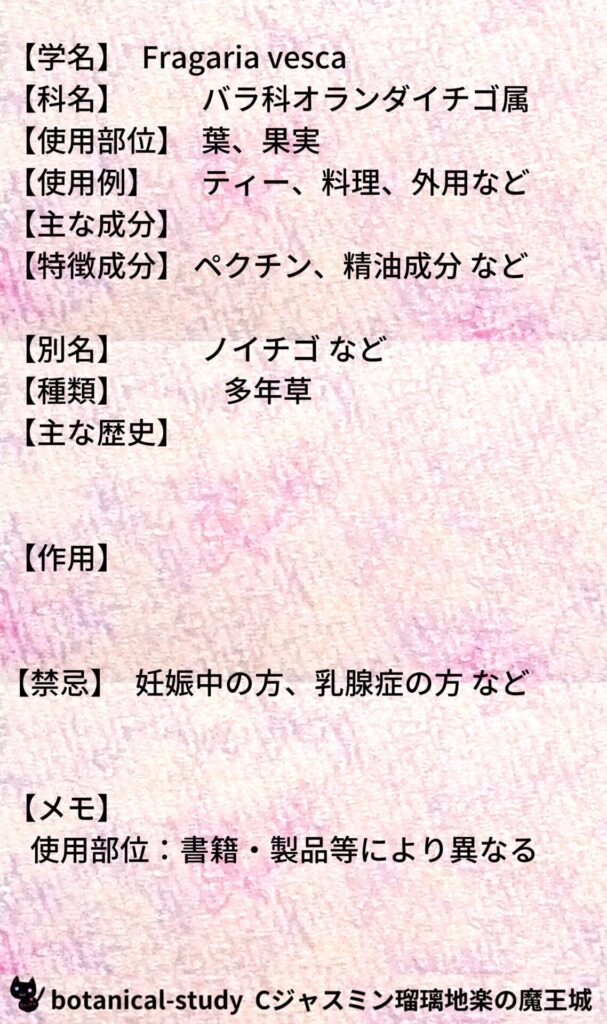 【学名】 Fragaria vesca
【科名】 バラ科オランダイチゴ属
【使用部位】 葉、果実
【使用例】 ティー、料理、外用など
【主な成分】
【特徴成分】 ペクチン、精油成分 など
【別名】 ノイチゴ など
【種類】 多年草
【主な歴史】
【作用】
【禁忌】 妊娠中の方、乳腺症の方 など
【メモ】
使用部位：書籍・製品等により異なる
botanical-study Cジャスミン瑠璃地楽の魔王城